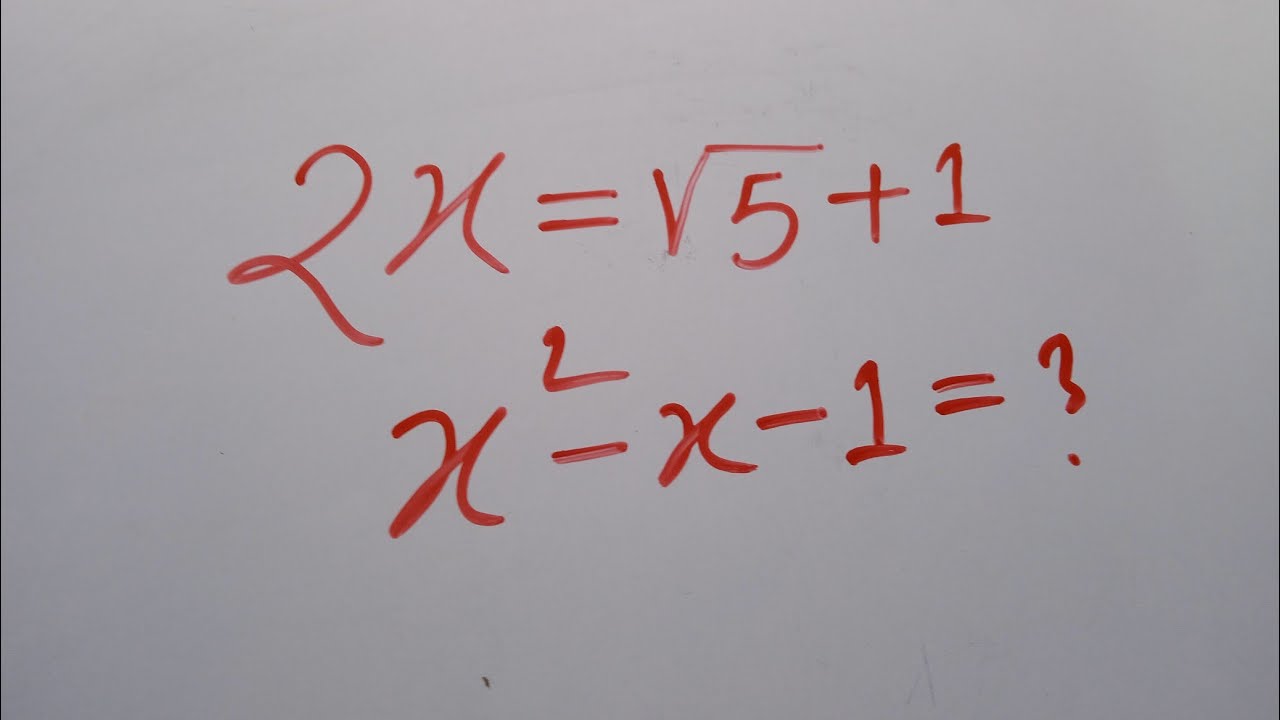 2x = √5 + 1
x² - x - 1 = ?